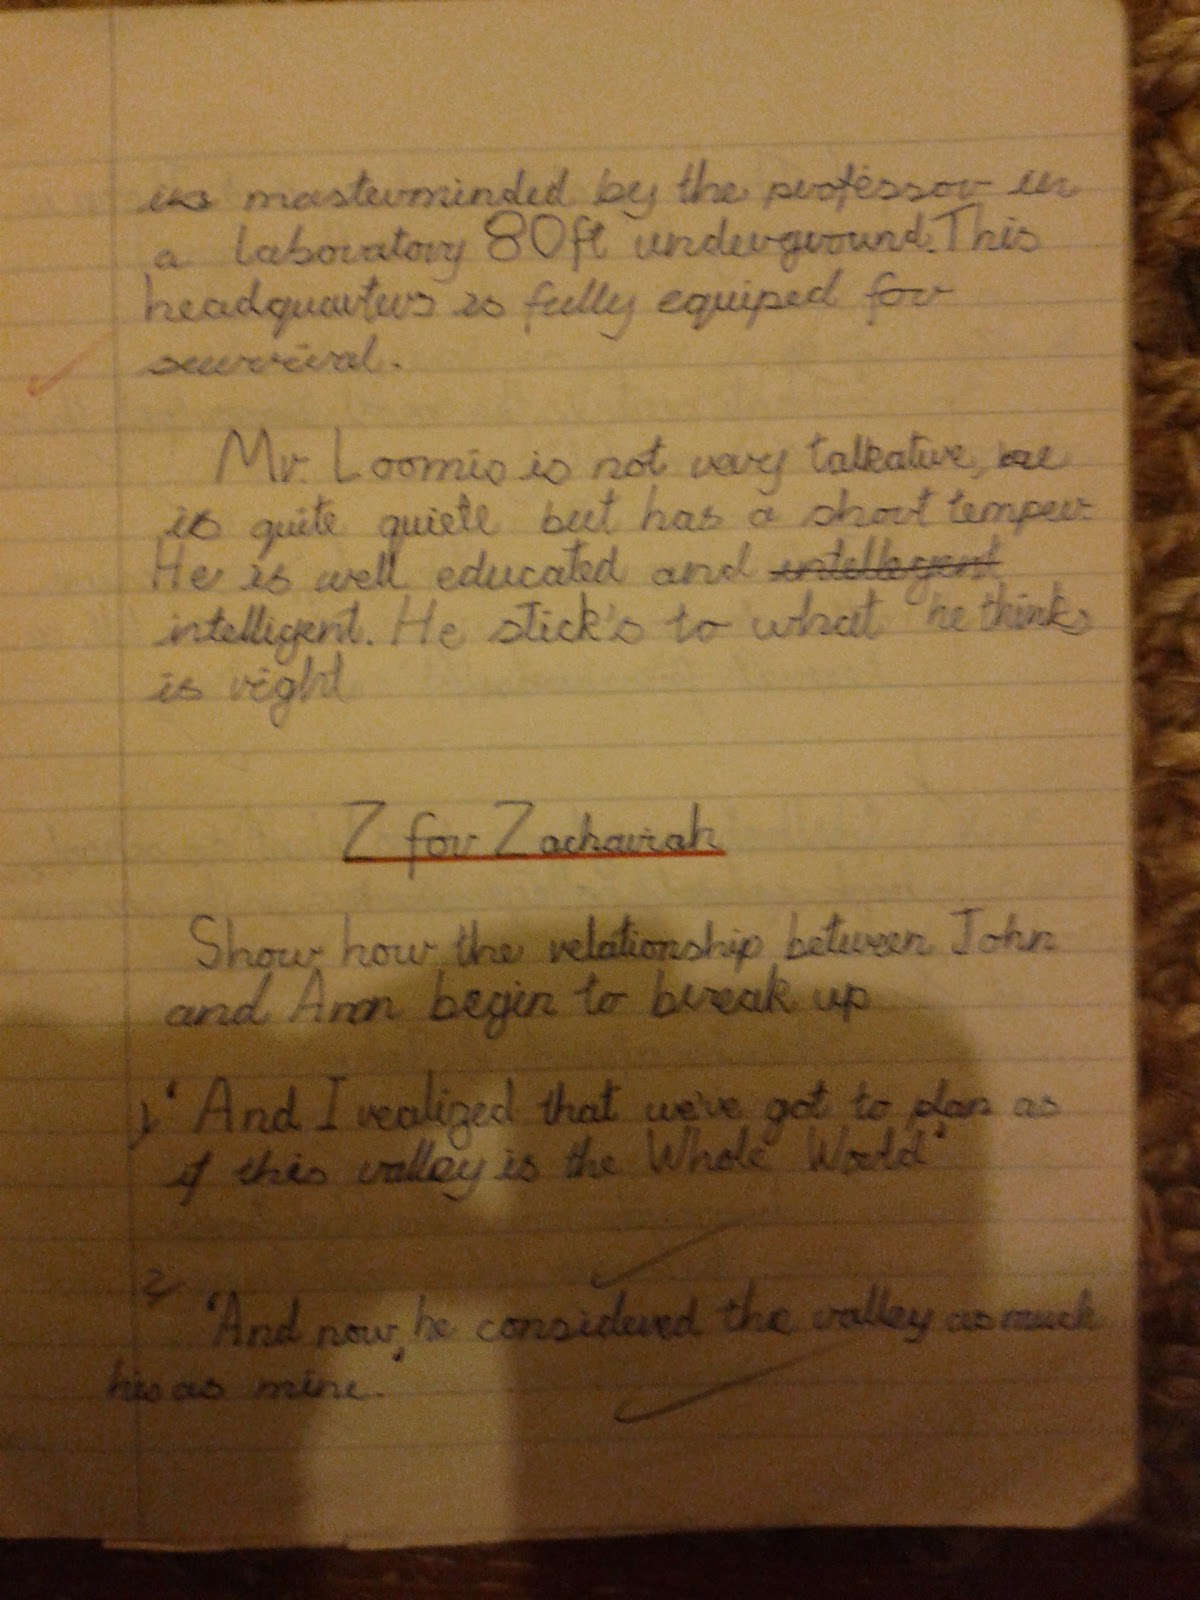 is masterminded by the professor in
a laboratory 80ft underground. This
headquarters is fully equiped for
survival.
Mr. Loomis is not very talkative, he
is quite quiete but has a short temper.
He is well educated and intellegent
intelligent. He stick's to what he thinks
is right
Z for Zachariah
Show how the relationship between John
and Ann begin to break up
1, 'And I realized that we've got to plan as
if this valley is the Whole World'
2, 'And now, he considered the valley as much
his as mine.'